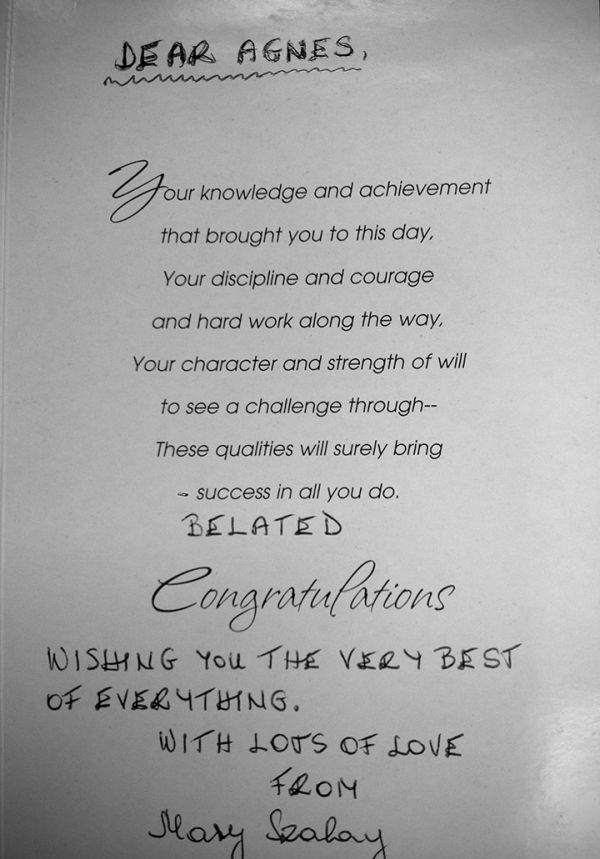 DEAR AGNES,
Your knowledge and achievement
that brought you to this day,
Your discipline and courage
and hard work along the way,
Your character and strength of will
to see a challenge through--
These qualities will surely bring
success in all you do.
BELATED
Congratulations
WISHING YOU THE VERY BEST
OF EVERYTHING.
WITH LOTS OF LOVE
FROM
Mary Szalay